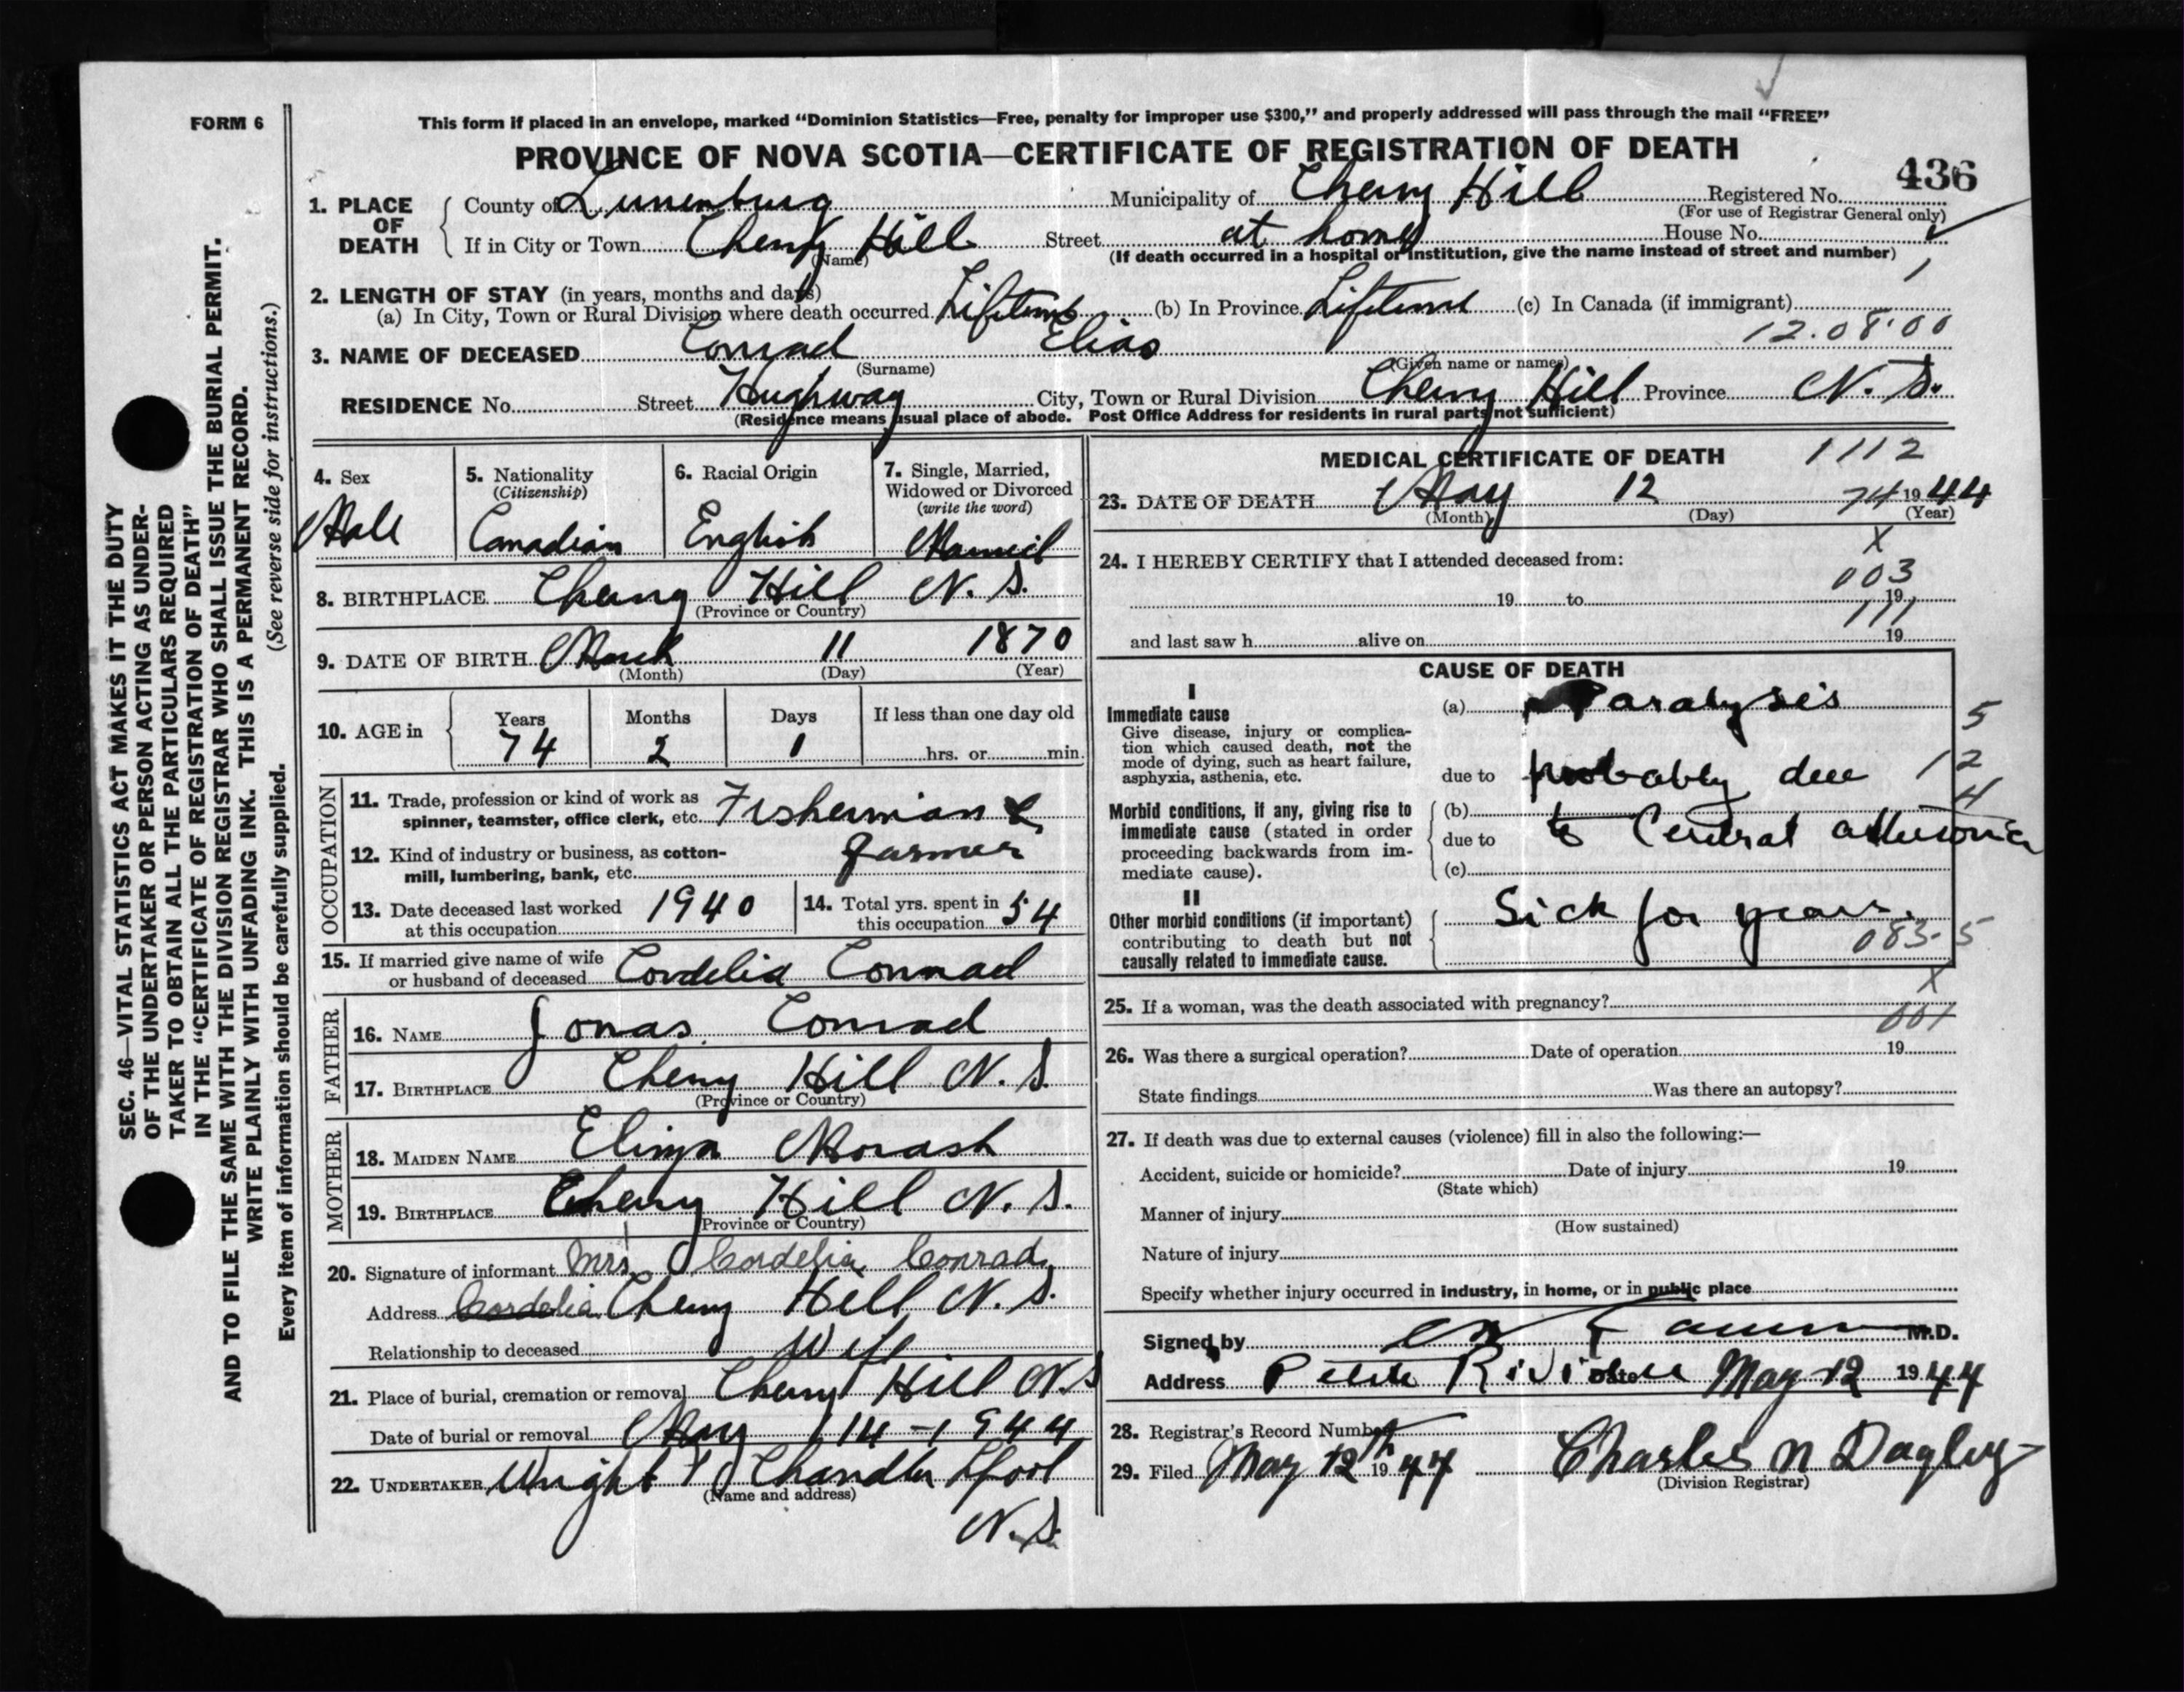 FORM 6
This form if placed in an envelope, marked “Dominion Statistics—Free, penalty for improper use $300,” and properly addressed will pass through the mail “FREE”
PROVINCE OF NOVA SCOTIA—CERTIFICATE OF REGISTRATION OF DEATH
436
1. PLACE OF DEATH
County of Lunenburg Municipality of Cherry Hill Registered No.
(For use of Registrar General only)
If in City or Town Cherry Hill Street at home House No.
(Name) (If death occurred in a hospital or institution, give the name instead of street and number)
1
2. LENGTH OF STAY (in years, months and days)
(a) In City, Town or Rural Division where death occurred Lifetime (b) In Province Lifetime (c) In Canada (if immigrant)
12.08.00
3. NAME OF DECEASED Conrad Elias
(Surname) (Given name or names)
RESIDENCE No. Street Highway City, Town or Rural Division Cherry Hill Province N. S.
(Residence means usual place of abode. Post Office Address for residents in rural parts not sufficient)
4. Sex
Male
5. Nationality
(Citizenship)
Canadian
6. Racial Origin
English
7. Single, Married,
Widowed or Divorced
(write the word)
Married
8. BIRTHPLACE Cherry Hill N. S.
(Province or Country)
9. DATE OF BIRTH March 11 1870
(Month) (Day) (Year)
10. AGE in
Years Months Days If less than one day old
74 2 1 hrs. or min.
OCCUPATION
11. Trade, profession or kind of work as
spinner, teamster, office clerk, etc. Fisherman &
12. Kind of industry or business, as cotton-
mill, lumbering, bank, etc. farmer
13. Date deceased last worked
at this occupation 1940
14. Total yrs. spent in
this occupation 54
15. If married give name of wife
or husband of deceased Cordelia Conrad
FATHER
16. NAME Jonas Conrad
17. BIRTHPLACE Cherry Hill N. S.
(Province or Country)
MOTHER
18. MAIDEN NAME Eliza Morash
19. BIRTHPLACE Cherry Hill N. S.
(Province or Country)
20. Signature of informant Mrs Cordelia Conrad
Address Cordelia Cherry Hill N. S.
Relationship to deceased Wife
21. Place of burial, cremation or removal Cherry Hill N.S
Date of burial or removal May 14 - 1944
22. UNDERTAKER Wright Chandler Lpool
(Name and address)
N.S.
MEDICAL CERTIFICATE OF DEATH
1112
23. DATE OF DEATH May 12 74 1944
(Month) (Day) (Year)
X
24. I HEREBY CERTIFY that I attended deceased from:
003
19 to 19
111
and last saw h alive on 19
CAUSE OF DEATH
I
Immediate cause
Give disease, injury or complica-
tion which caused death, not the
mode of dying, such as heart failure,
asphyxia, asthenia, etc.
(a) Paralysis
5
due to probably due
12
4
Morbid conditions, if any, giving rise to
immediate cause (stated in order
proceeding backwards from im-
mediate cause).
(b)
due to to
(c)
II
Other morbid conditions (if important)
contributing to death but not
causally related to immediate cause.
Sick for years.
083-5
X
25. If a woman, was the death associated with pregnancy?
001
26. Was there a surgical operation? Date of operation 19
State findings Was there an autopsy?
27. If death was due to external causes (violence) fill in also the following:—
Accident, suicide or homicide? Date of injury 19
(State which)
Manner of injury
(How sustained)
Nature of injury
Specify whether injury occurred in industry, in home, or in public place
Signed by M.D.
Address Petite Riviere Date May 12 1944
28. Registrar's Record Number
29. Filed May 12th 1944 Charles N Dagley
(Division Registrar)
SEC. 46—VITAL STATISTICS ACT MAKES IT THE DUTY
OF THE UNDERTAKER OR PERSON ACTING AS UNDER-
TAKER TO OBTAIN ALL THE PARTICULARS REQUIRED
IN THE “CERTIFICATE OF REGISTRATION OF DEATH”
AND TO FILE THE SAME WITH THE DIVISION REGISTRAR WHO SHALL ISSUE THE BURIAL PERMIT.
WRITE PLAINLY WITH UNFADING INK. THIS IS A PERMANENT RECORD.
Every item of information should be carefully supplied. (See reverse side for instructions.)